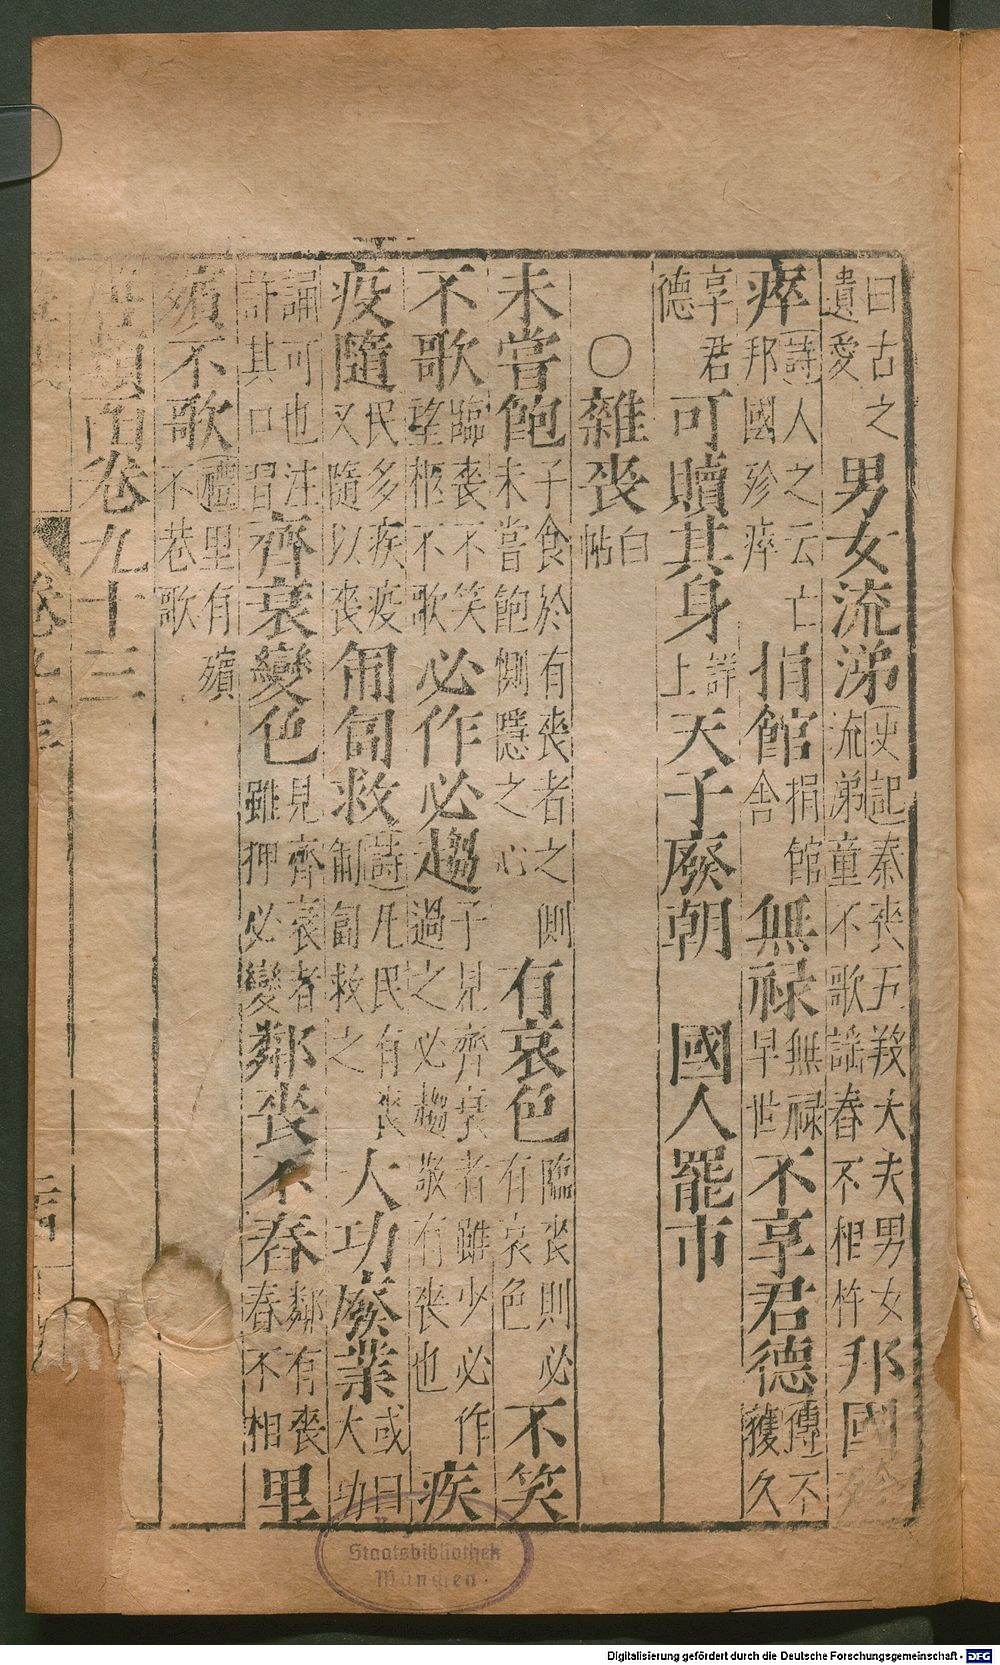 曰古之遺愛男女流涕史記秦喪五羖大夫男女流涕童不歌謠舂不相杵邦國殄
瘁詩人之云亡邦國殄瘁捐館捐館舍無祿無祿早世不享君德傳不獲久
享君德可贖其身詳上天子廢朝 國人罷市
○雜喪白帖
未嘗飽子食於有喪者之側未嘗飽惻隱之心有哀色臨喪則必有哀色不笑
不歌臨喪不笑望柩不歌必作必趨子見齊衰者雖少必作過之必趨敬有喪也疾
疫隨民多疾疫又隨以喪匍匐救詩凡民有喪匍匐救之大功廢業或曰大功
誦可也注許其口習齊衰變色見齊衰者雖狎必變鄰喪不舂鄰有喪舂不相里
殯不歌禮里有殯不巷歌
卷九十三
卷九十三
Staatsbibliothek
München
Digitalisierung gefördert durch die Deutsche Forschungsgemeinschaft - DFG